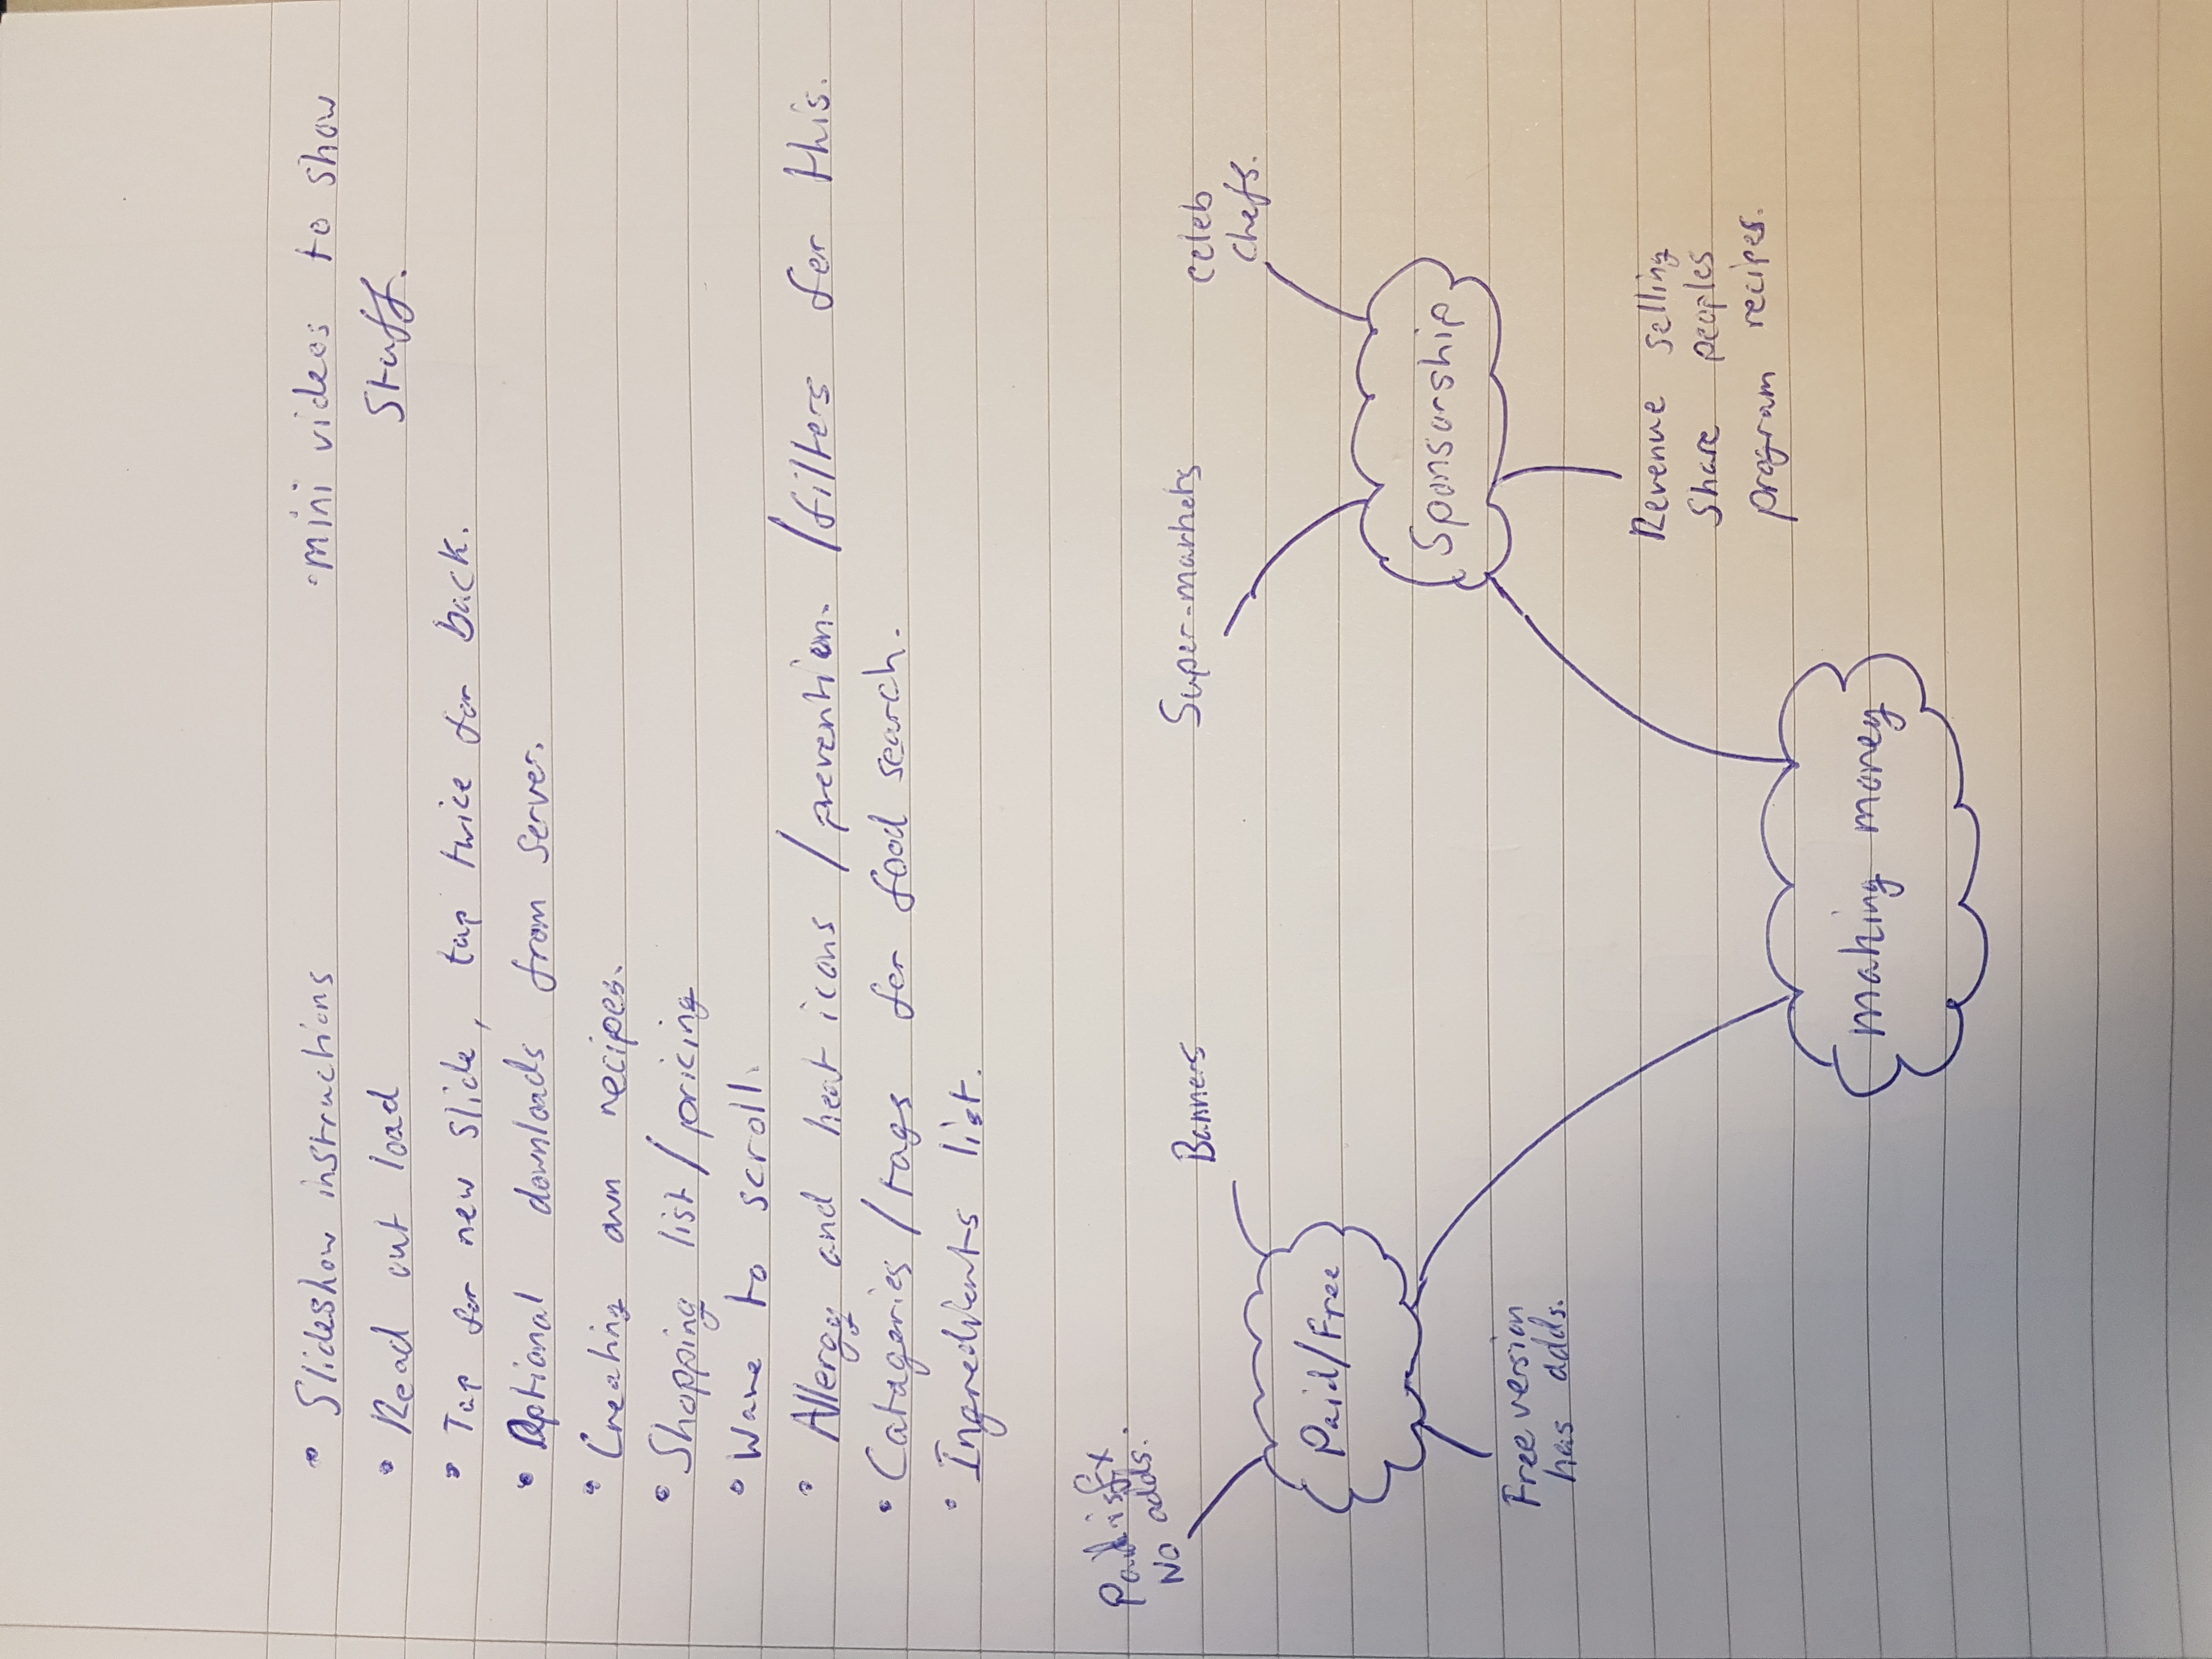 • Slideshow instructions
• mini videos to show
stuff.
• Read out load
• Tap for new slide, tap twice for back.
• Optional downloads from server.
• Creating own recipes.
• Shopping list / pricing
• Wave to scroll.
• Allergy and heat icons / prevention. / filters for this.
• Catagories / tags for food search.
• Ingredients list.
Paid is
No adds.
Banners
Paid/Free
Free version
has adds.
Super-markets
celeb
chefs.
Sponsorship
Revenue selling
share peoples
program recipes.
making money